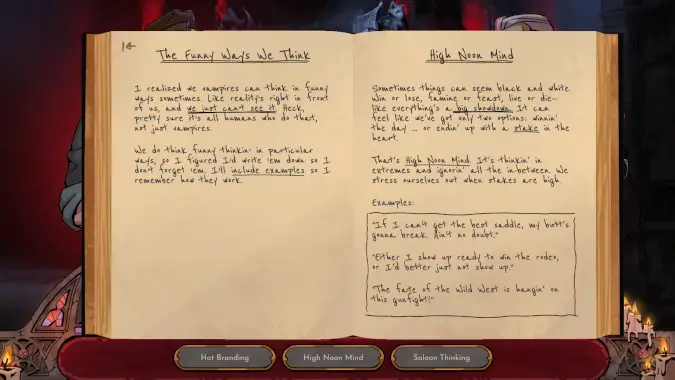 The Funny Ways We Think
I realized we vampires can think in funny
ways sometimes. Like reality's right in front
of us, and we just can't see it. Heck,
pretty sure it's all humans who do that,
not just vampires.
We do think funny thinkin' in particular
ways, so I figured I'd write 'em down so I
don't forget 'em. I'll include examples so I
remember how they work.
High Noon Mind
Sometimes things can seem black and white.
Win or lose, famine or feast, live or die—
like everything's a big showdown. It can
feel like we've got only two options: winnin'
the day ... or endin' up with a stake in the
heart.
That's High Noon Mind. It's thinkin' in
extremes and ignorin' all the in-between. We
stress ourselves out when stakes are high.
Examples:
"If I can't get the best saddle, my butt's
gonna break. Ain't no doubt."
"Either I show up ready to win the rodeo,
or I'd better just not show up."
"The fate of the Wild West is hangin' on
this gunfight!"
Hot Branding
High Noon Mind
Saloon Thinking